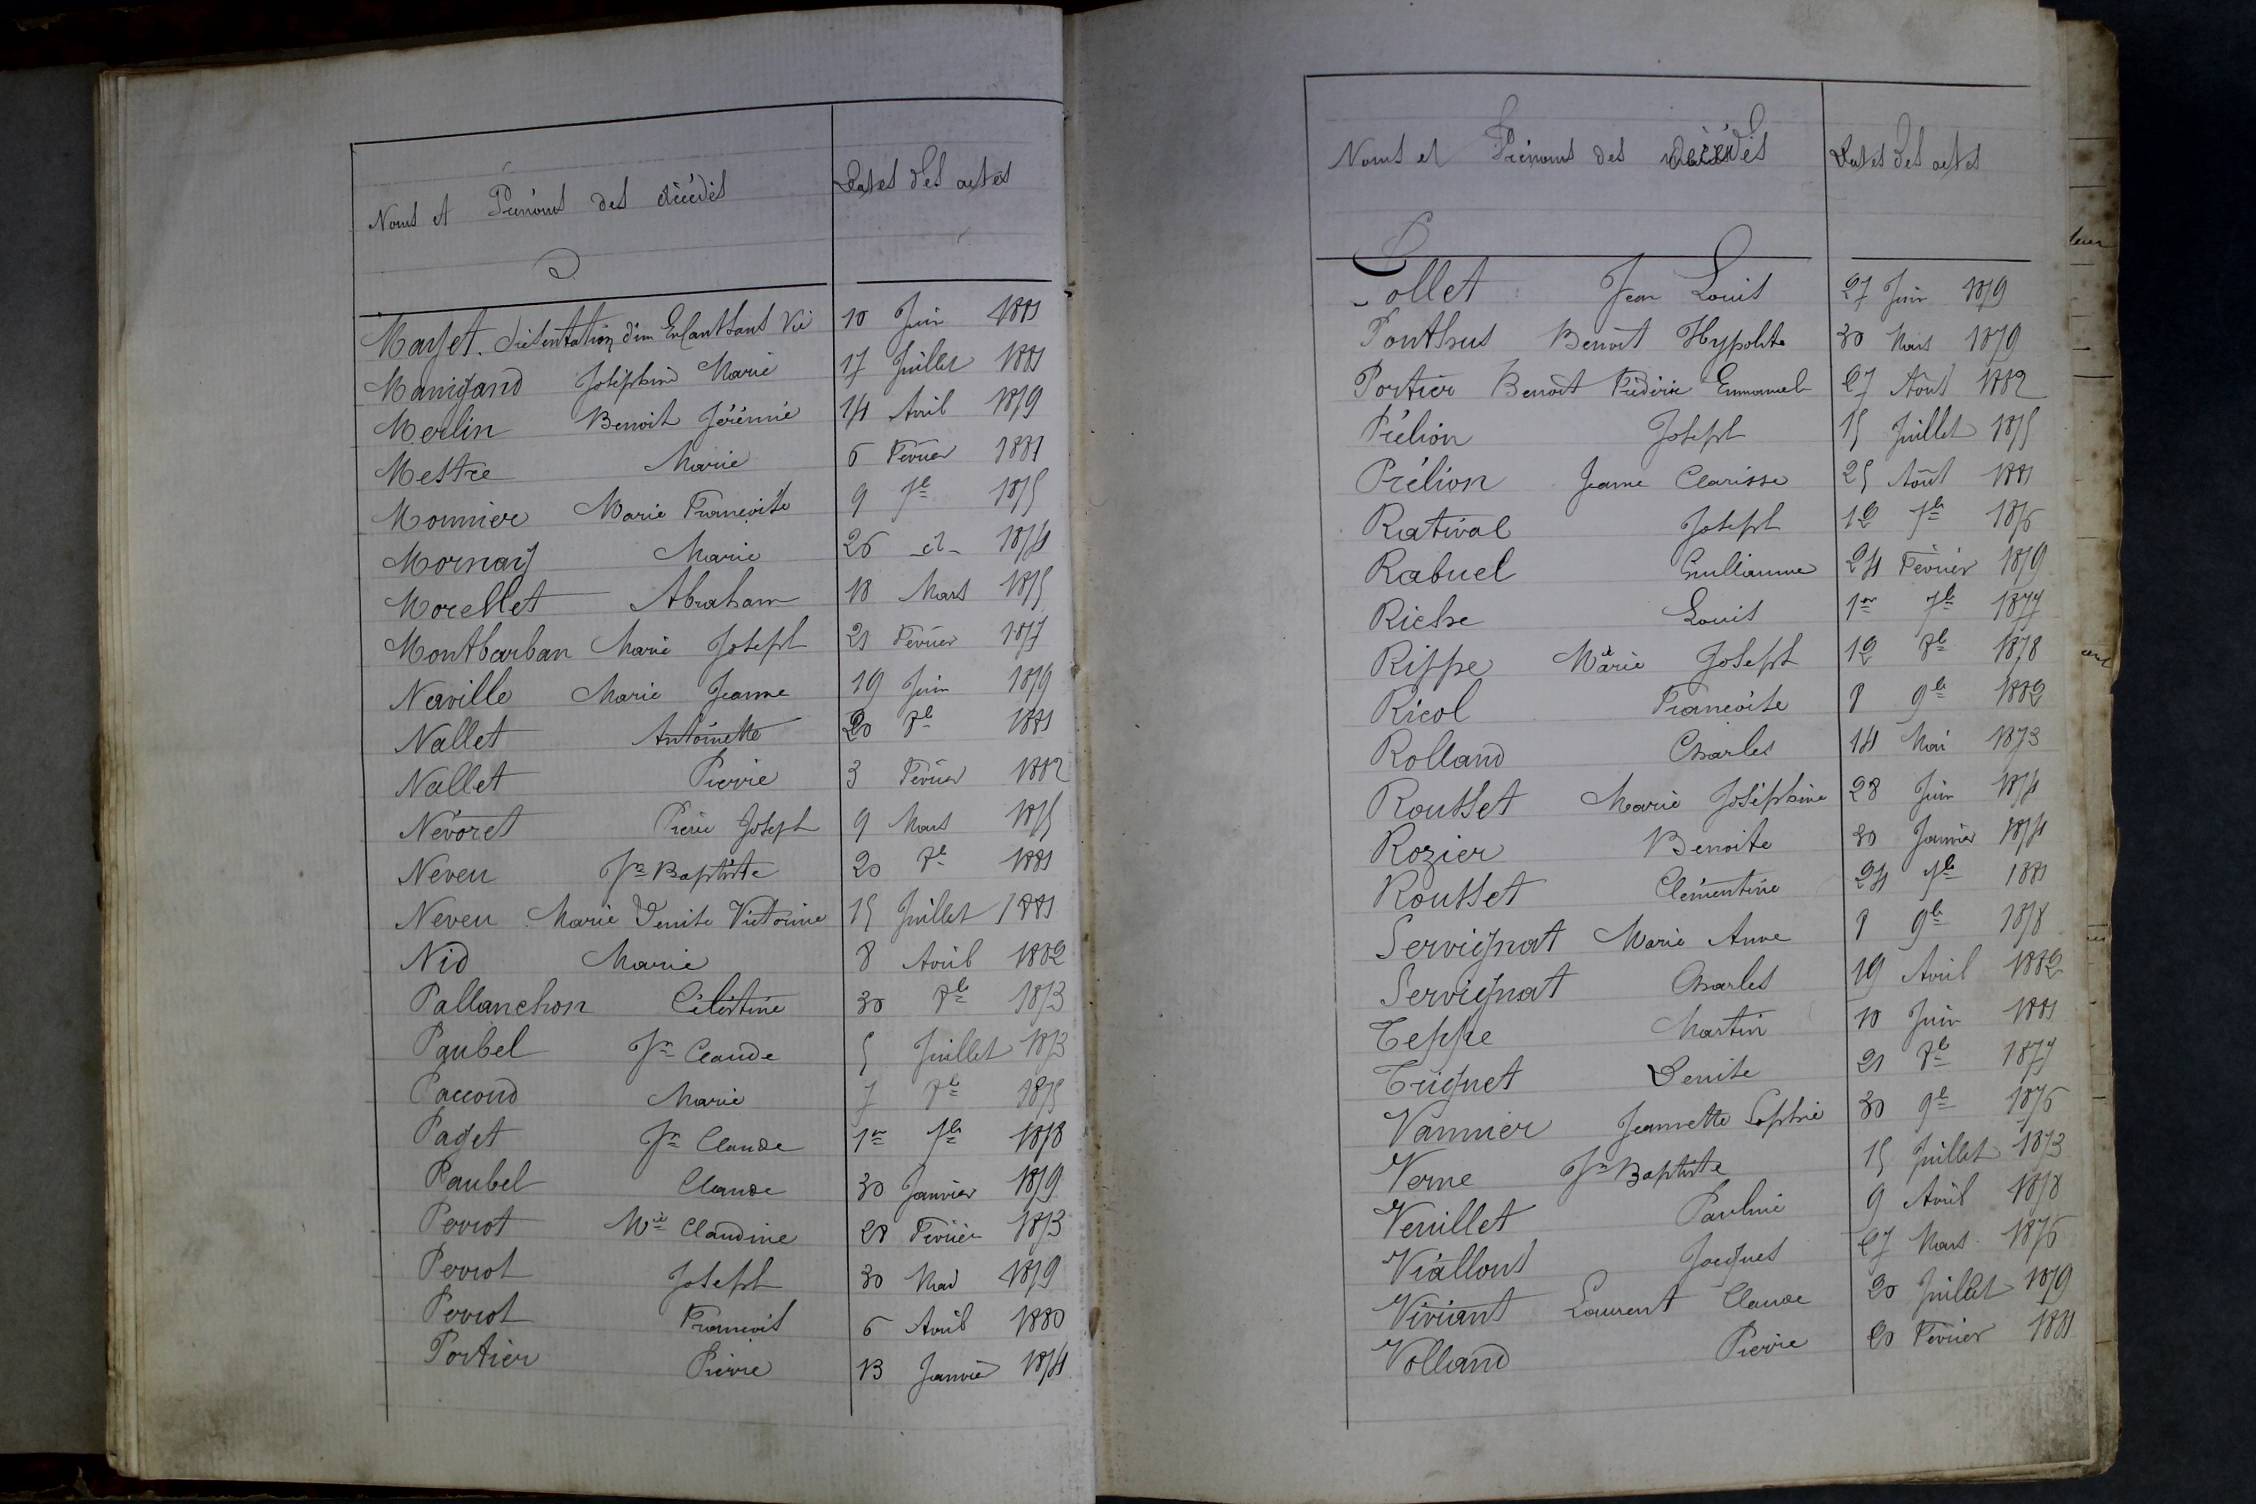 Noms et Prénoms des décédés Dates des actes
Mayet. présentation d'un Enfant sans Vie 10 Juin 1881
Manigand Joséphine Marie 17 Juillet 1881
Merlin Benoit Jérémie 14 Avril 1879
Mestre Marie 6 Février 1881
Monnier Marie Françoise 9 7bre 1875
Mornay Marie 26 -d- 1874
Morellet Abraham 18 Mars 1875
Montbarban Marie Joseph 21 Février 1877
Naville Marie Jeanne 19 Juin 1879
Nallet Antoinette 20 8b 1881
Nallet Pierre 3 Février 1882
Névoret Pierre Joseph 9 Mars 1875
Neveu Jn Baptiste 20 8b 1881
Neveu Marie Denise Victorine 15 Juillet 1881
Nid Marie 8 Avril 1882
Pallanchon Célestine 30 8b 1873
Paubel Jn Claude 5 Juillet 1873
Paccoud Marie 7 8b 1875
Paget Jn Claude 1er 7b 1878
Paubel Claude 30 Janvier 1879
Perrot Mie Claudine 28 Février 1873
Perrot Joseph 30 Mai 1879
Perrot François 6 Avril 1880
Portier Pierre 13 Janvier 1874
Noms et Prénoms des décédés Dates des actes
Pollet Jean Louis 27 Juin 1879
Ponthus Benoit Hypolite 30 Mars 1879
Portier Benoît Frédéric Emmanuel 27 Août 1882
Prélion Joseph 15 Juillet 1875
Prélion Jeanne Clarisse 25 Août 1881
Ratival Joseph 12 7b 1876
Rabuel Guillaume 24 Février 1879
Riche Louis 1er 7b 1877
Rippe Marie Joseph 12 8b 1878
Ricol Françoise 8 9b 1882
Rolland Charles 14 Mai 1873
Rousset Marie Joséphine 28 Juin 1874
Rozier Benoite 30 Janvier 1874
Rousset Clémentine 24 7b 1881
Servignat Marie Anne 8 9b 1878
Servignat Charles 19 Avril 1882
Teppe Martin 10 Juin 1881
Triquet Denise 21 8b 1877
Vannier Jeannette Sophie 30 9b 1876
Verne Jn Baptiste 15 Juillet 1873
Veuillet Pauline 9 Avril 1878
Viallons Jacques 27 Mars 1876
Viviant Laurent Claude 20 Juillet 1879
Volland Pierre 20 Février 1881